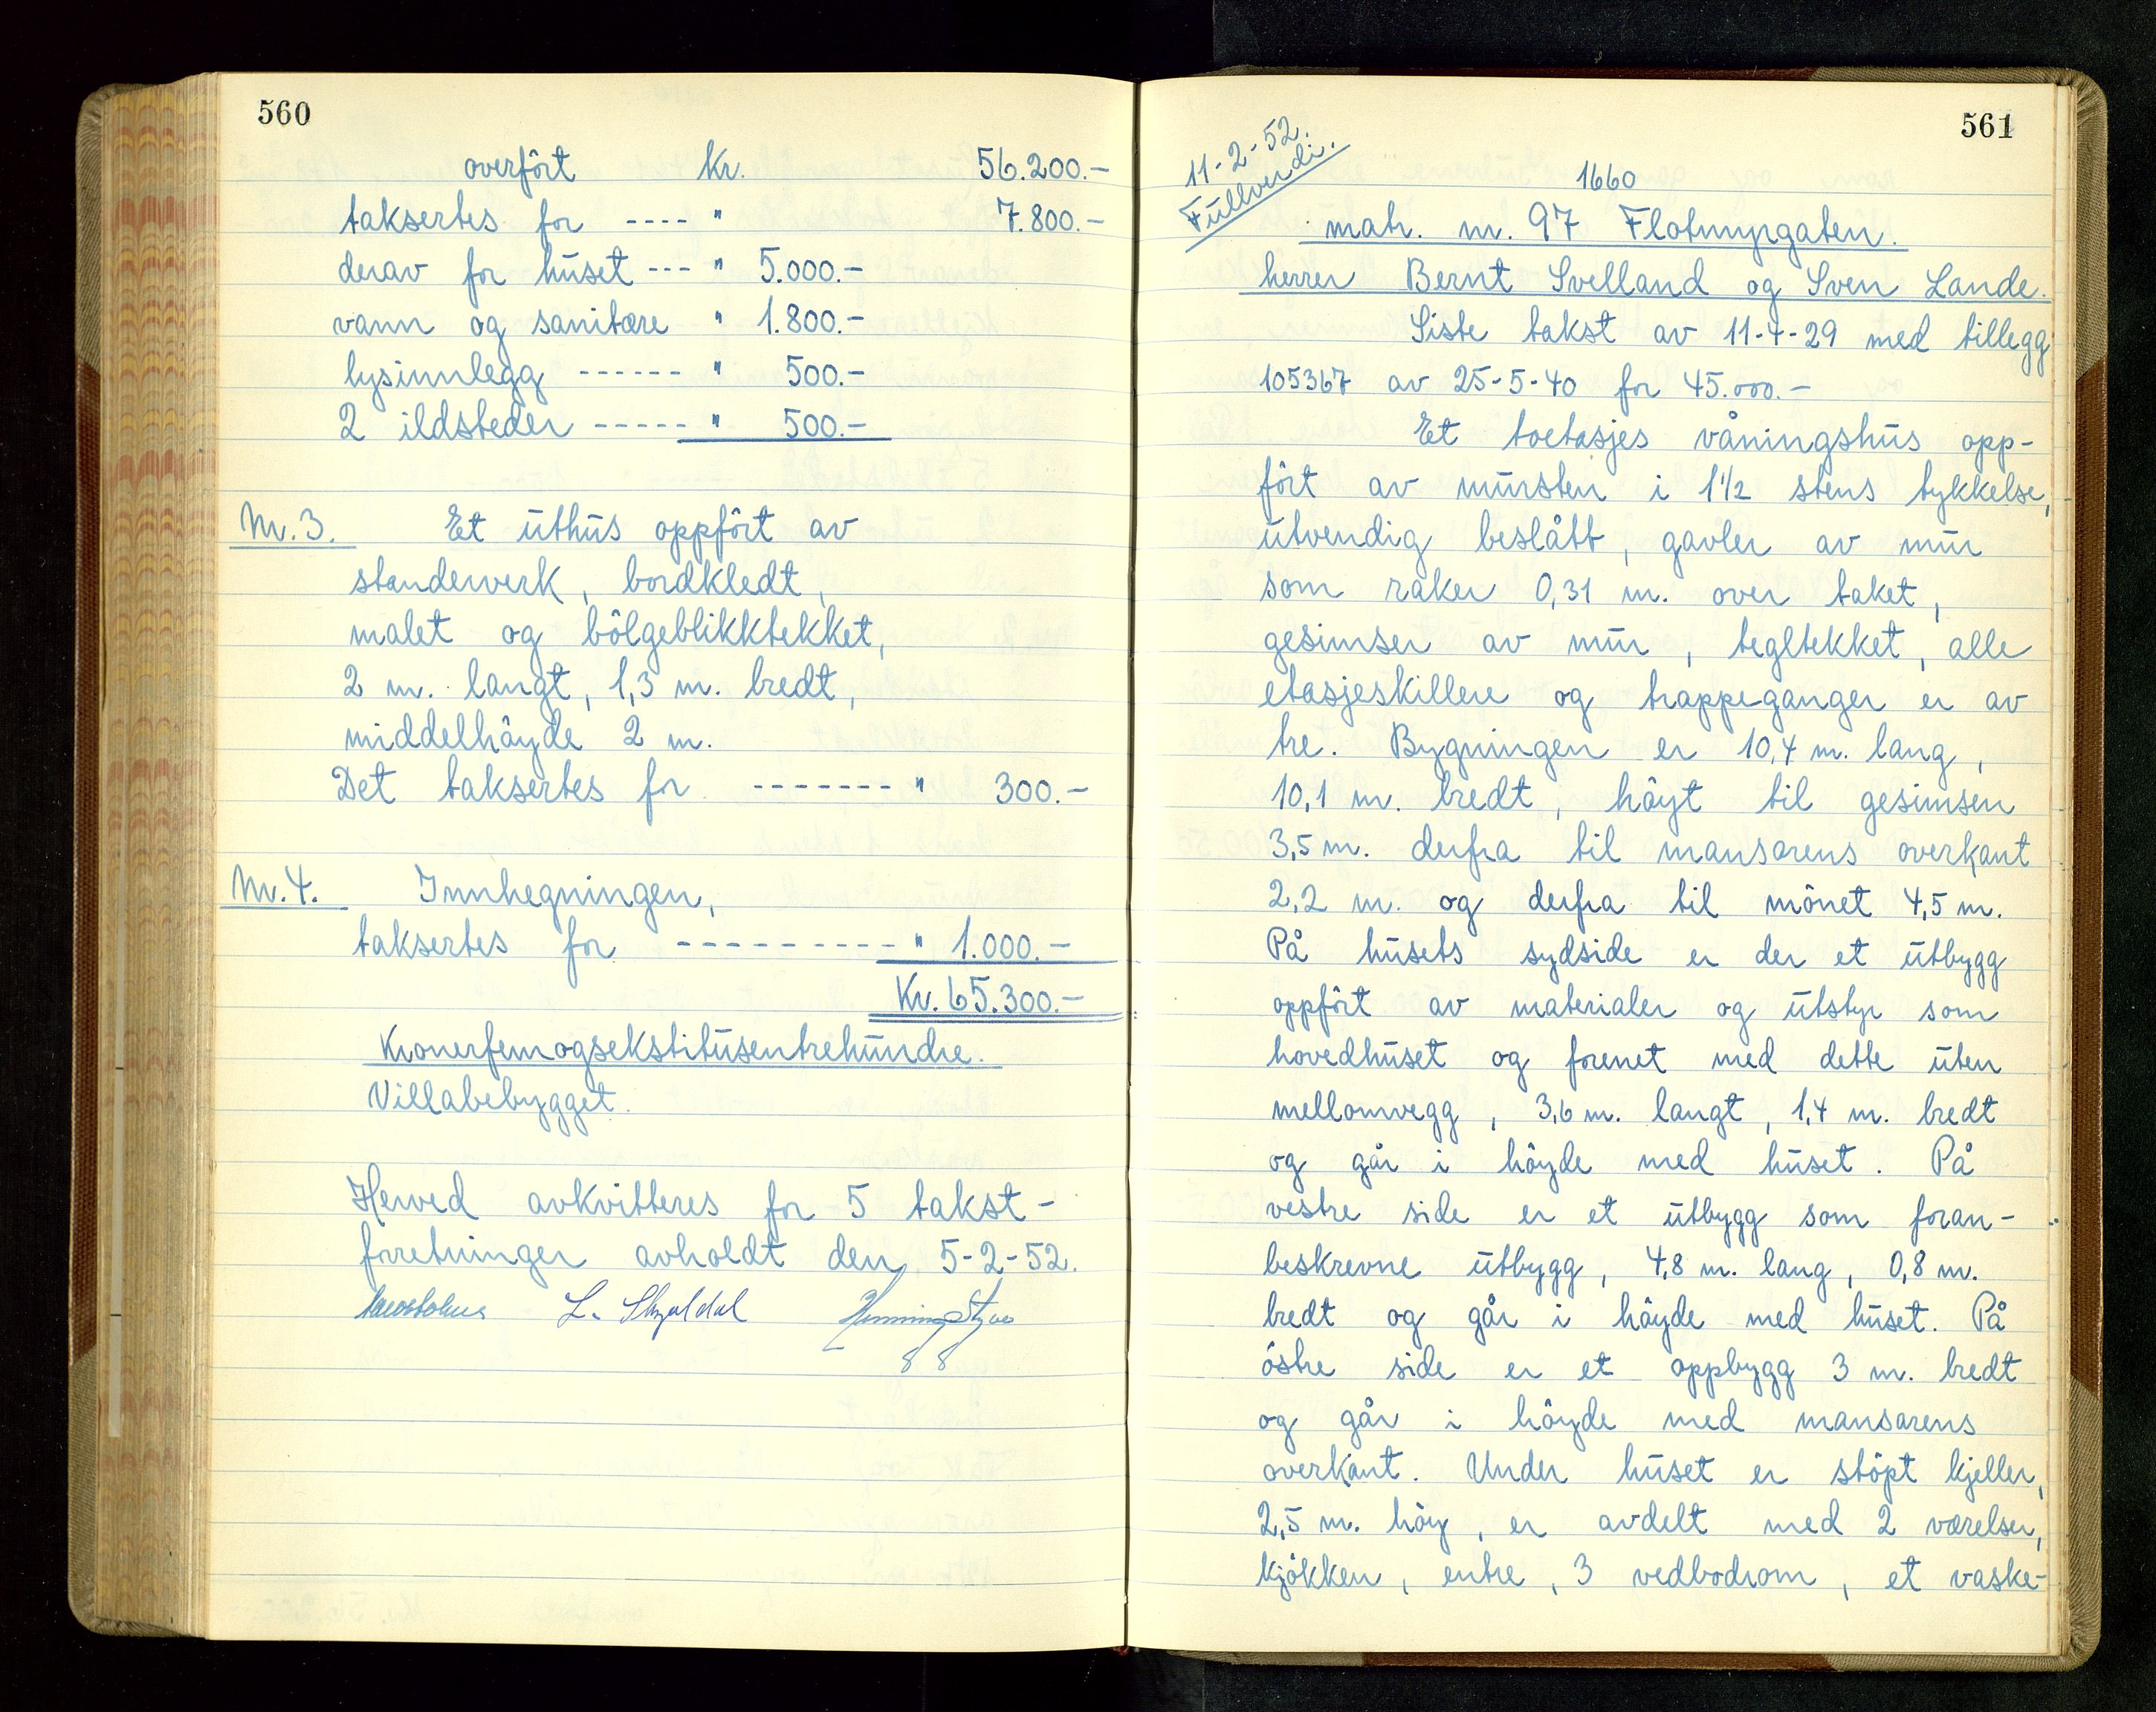 560
overført Kr. 56.200.-
taksertes for ---- " 7.800.-
derav for huset --- " 5.000.-
vann og sanitære " 1.800.-
lysinnlegg ------ " 500.-
2 ildsteder ----- " 500.-
Nr. 3. Et uthus oppført av
standerverk, bordkledt,
malet og bølgeblikktekket,
2 m. langt, 1,3 m. bredt,
middelhøyde 2 m.
Det taksertes for ------- " 300.-
Nr. 4. Innhegningen,
taksertes for ---------- " 1.000.-
Kr. 65.300.-
Kronerfemogsekstitusentrehundre.
Villabebygget.
Herved avkvitteres for 5 takst-
forretninger avholdt den 5-2-52.
L. Skjoldal Henning
561
11-2-52.
Fullverdi.
1660
matr. nr. 97 Flotmyrgaten.
herrer Bernt Svelland og Sven Lande.
Siste takst av 11-4-29 med tillegg
105367 av 25-5-40 for 45.000.-
Et toetasjes våningshus opp-
ført av mursten i 1 1/2 stens tykkelse,
utvendig beslått, gavler av mur
som raker 0,31 m. over taket,
gesimser av mur, tegltekket, alle
etasjeskillere og trappeganger er av
tre. Bygningen er 10,4 m. lang,
10,1 m. bredt, høyt til gesimsen
3,5 m. derfra til mansarens overkant
2,2 m. og derfra til mønet 4,5 m.
På husets sydside er der et utbygg
oppført av materialer og utstyr som
hovedhuset og forenet med dette uten
mellomvegg, 3,6 m. langt, 1,4 m. bredt
og går i høyde med huset. På
vestre side er et utbygg som foran-
beskrevne utbygg, 4,8 m. lang, 0,8 m.
bredt og går i høyde med huset. På
østre side er et oppbygg 3 m. bredt
og går i høyde med mansarens
overkant. Under huset er støpt kjeller,
2,5 m. høy, er avdelt med 2 værelser,
kjøkken, entre, 3 vedbodrom, et vaske-